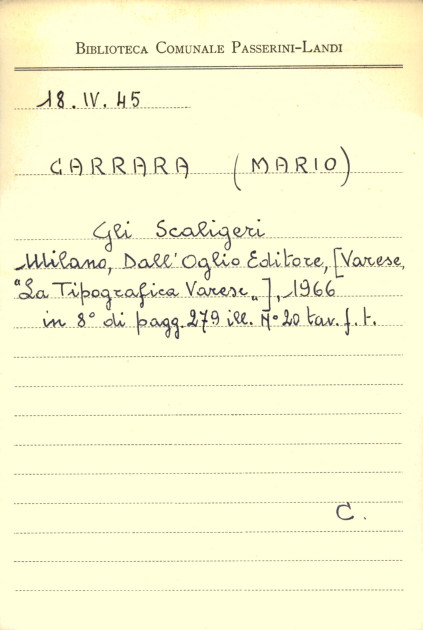 Biblioteca Comunale Passerini-Landi
18. IV. 45
CARRARA (MARIO)
Gli Scaligeri
Milano, Dall'Oglio Editore, [Varese,
"La Tipografica Varese"], 1966
in 8° di pagg. 279 ill. N° 20 tav. f. t.
C.